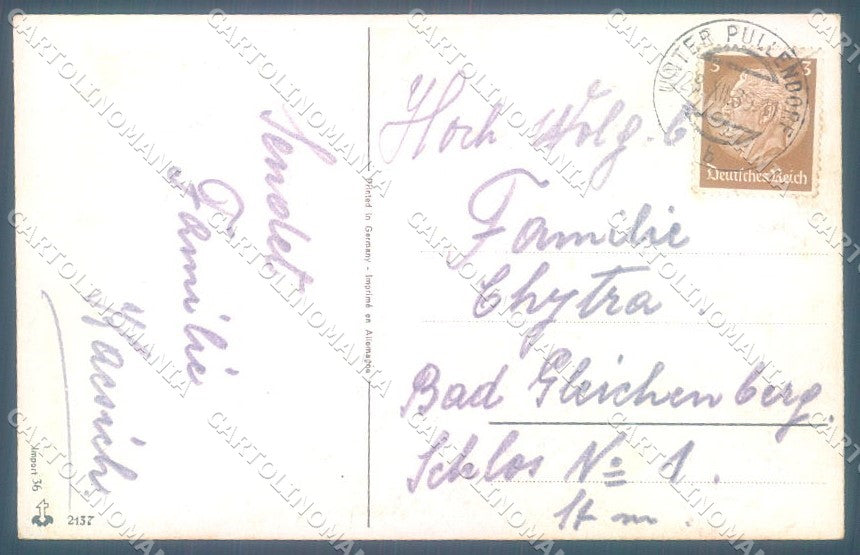 UNTER PULLENDORF
3 3
Deutsches Reich
Hoch Wolg. 
Familie
Chytra
Bad Gleichenberg.
Schlos No 1.
St m.
Sendet
Familie
Printed in Germany - Imprimé en Allemagne
Import 36
2137
CARTOLINOMANIA